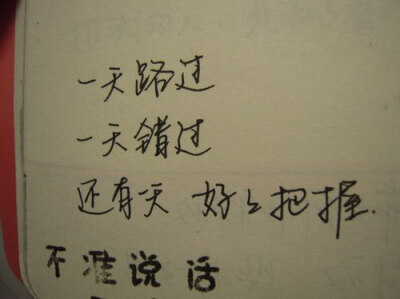 一天路过
一天错过
还有天 好々把握.
不准说话